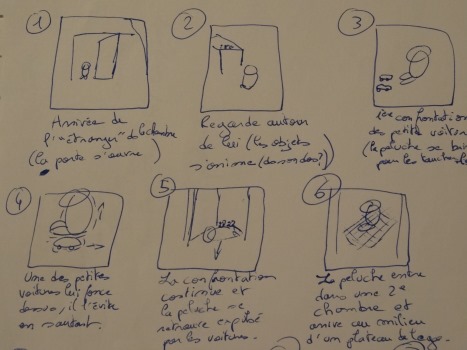 1
2
3
Arrivée de
l'"étranger" de la chambre
(la porte s'ouvre)
Regarde autour
de lui (les objets
s'anime
1ère confrontation
des petite voitures
(la peluche se
pour les
4
5
6
Une des petites
voitures lui fonce
dessus, il l'évite
en sautant.
La confrontation
continue et
la peluche se
retrouve expulsé
par les voitures.
La peluche entre
dans une 2e
chambre et
arrive au milieu
d'un plateau de